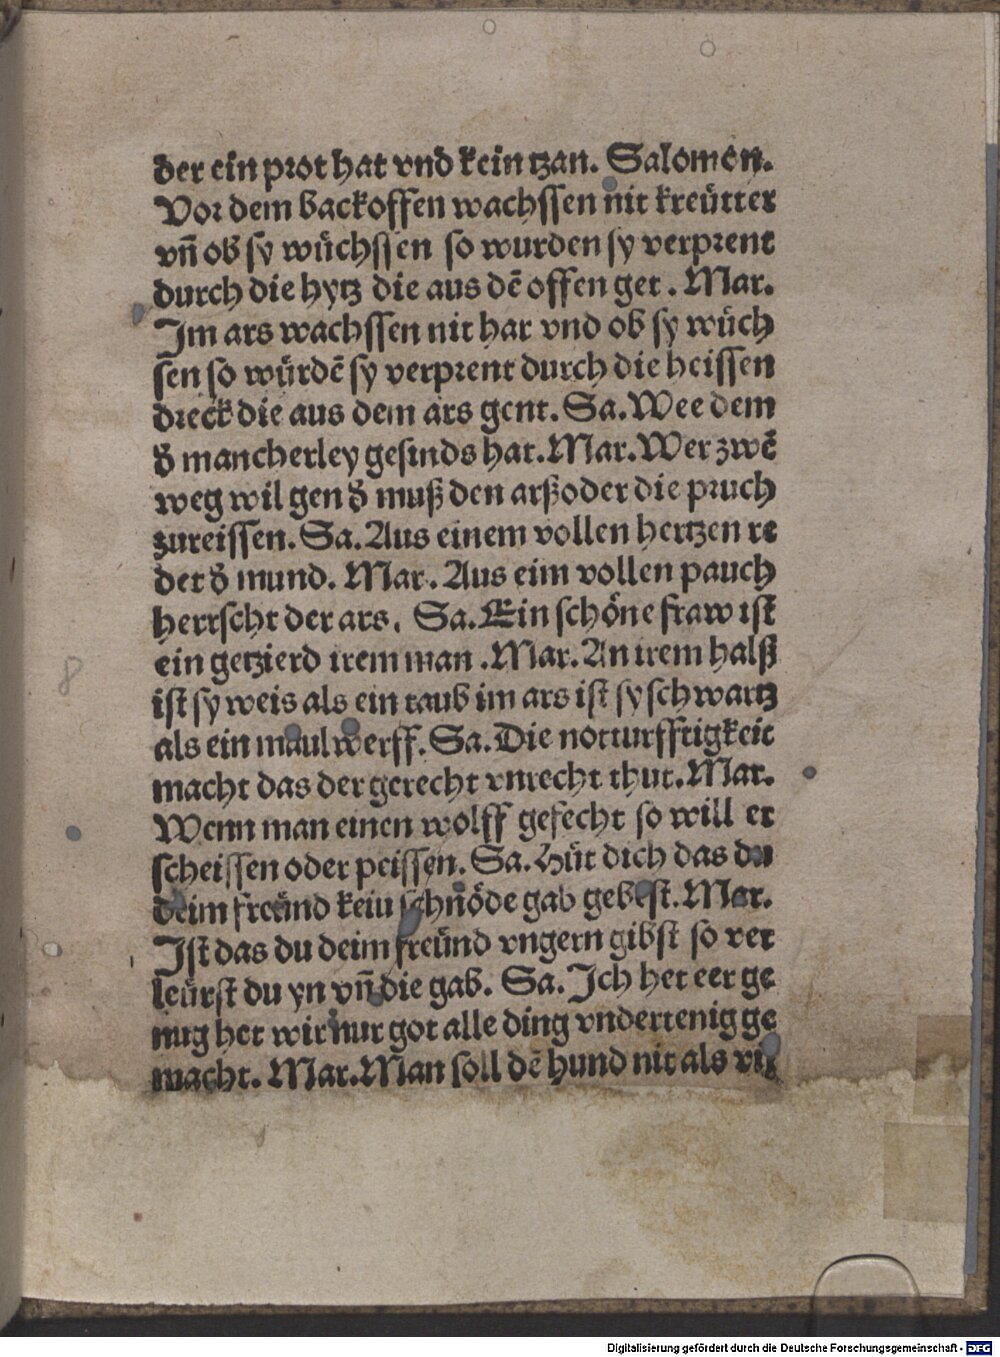 der ein prot hat vnd kein tzan. Salomon.
Vor dem backoffen wachssen nit kreütter
vn̄ ob sy wüchssen so wurden sy verprent
durch die hytz die aus dē offen get. Mar.
Im ars wachssen nit har vnd ob sy wüch
sen so würdē sy verprent durch die heissen
dreck die aus dem ars gent. Sa. Wee dem
d̕ mancherley gesinds hat. Mar. Wer zwē
weg wil gen d̕ muß den arß oder die pruch
zureissen. Sa. Aus einem vollen hertzen re
det d̕ mund. Mar. Aus eim vollen pauch
herrscht der ars. Sa. Ein schöne fraw ist
ein getzierd irem man. Mar. An irem halß
ist sy weis als ein taub im ars ist sy schwartz
als ein maulwerff. Sa. Die notturfftigkeit
macht das der gerecht vnrecht thut. Mar.
Wenn man einen wolff gefecht so will er
scheissen oder peissen. Sa. Hüt dich das du
deim freünd keiu schnöde gab gebest. Mar.
Ist das du deim freünd vngern gibst so ver
leürst du yn vn̄ die gab. Sa. Ich het eer ge
nug het wir nur got alle ding vndertenig ge
macht. Mar. Man soll dē hund nit als vil
8
Digitalisierung gefördert durch die Deutsche Forschungsgemeinschaft - DFG